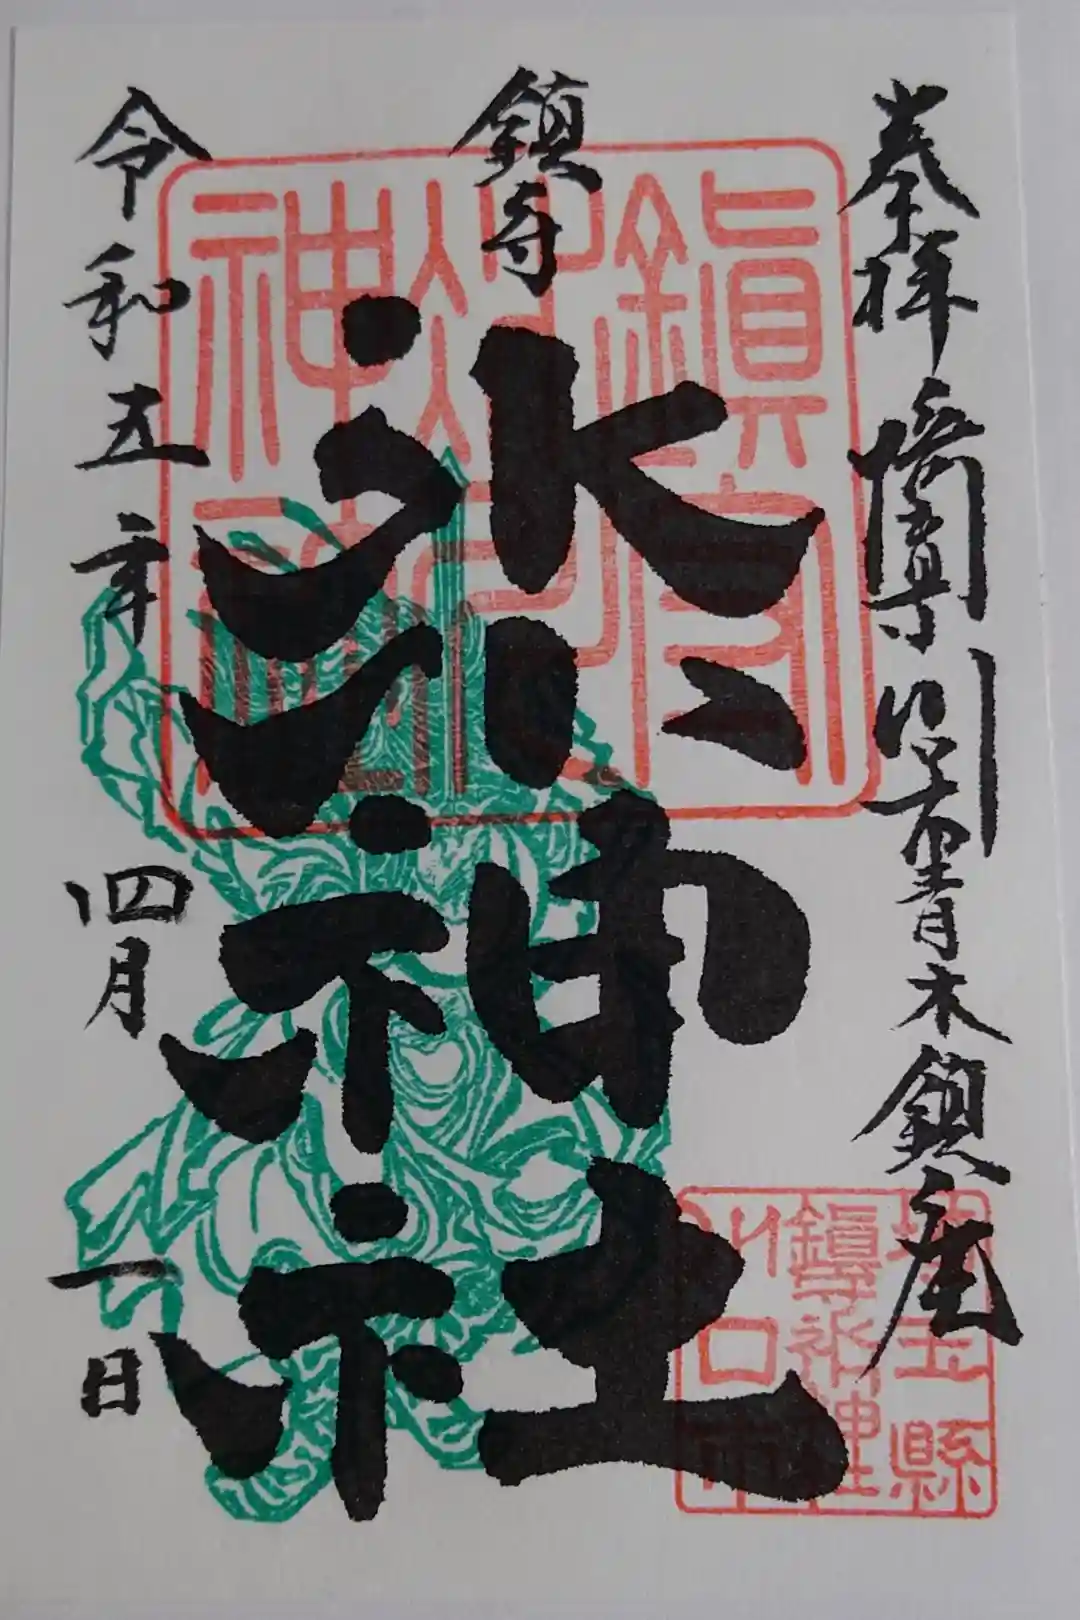 奉拝
青木鎮座
鎮守
氷川神社
令和五年四月一日
鎮守
氷川
神社
埼玉縣
鎮守氷川神社
川口市